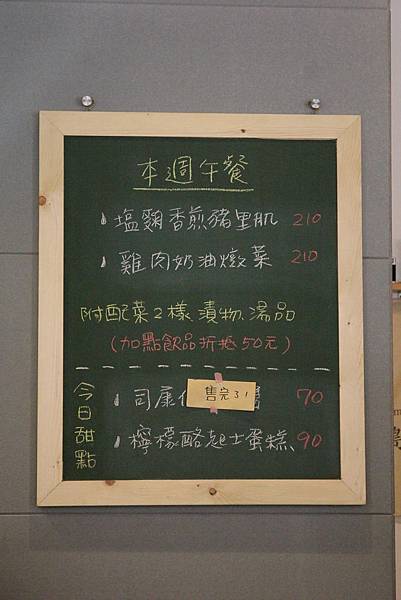 本週午餐
塩麴香煎豬里肌 210
雞肉奶油燉菜 210
附配菜2樣、漬物、湯品
(加點飲品折抵50元)
今日甜點
司康 70
售完
檸檬酪起士蛋糕 90